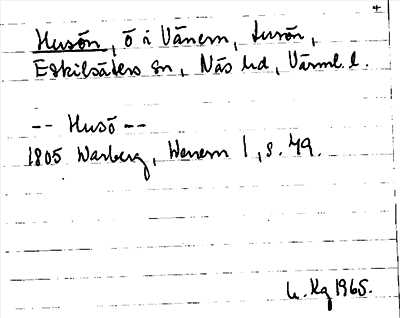 Husön, ö i Vänern, Lurön,
Eskilsäters sn, Näs hd, Värml. l.
-- Husö --
1805 Warberg, Wenern 1, s. 49.
Kg 1965.